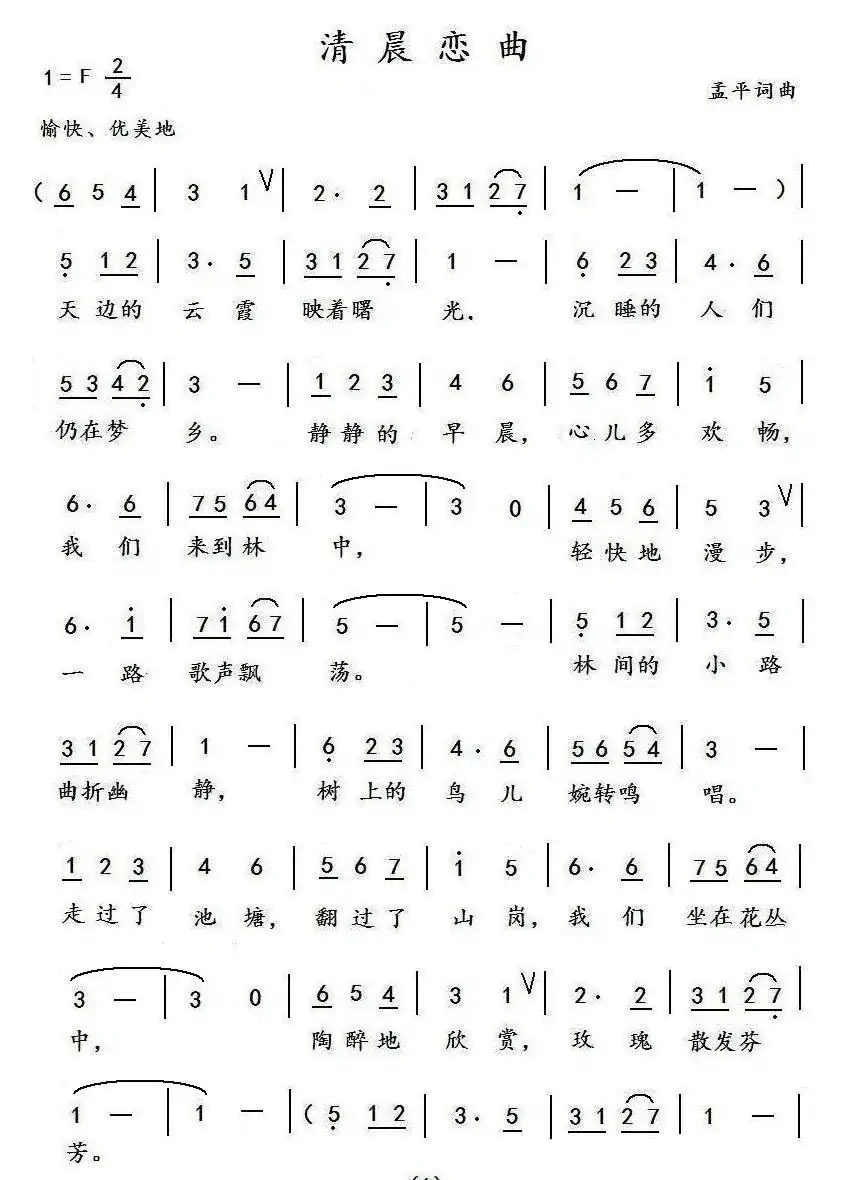 清晨恋曲
1=F 2/4
孟平词曲
愉快、优美地
( 6 5 4 | 3 1 V | 2· 2 | 3 1 2 7 | 1 — | 1 — ) |
5 1 2 | 3· 5 | 3 1 2 7 | 1 — | 6 2 3 | 4· 6 |
天 边的 云 霞 映着曙 光, 沉 睡的 人 们
5 3 4 2 | 3 — | 1 2 3 | 4 6 | 5 6 7 | i 5 |
仍在梦 乡。 静静的 早 晨, 心儿多 欢 畅,
6· 6 | 7 5 6 4 | 3 — | 3 0 | 4 5 6 | 5 3 V |
我 们 来到林 中, 轻快地 漫 步,
6· i | 7 i 6 7 | 5 — | 5 — | 5 1 2 | 3· 5 |
一 路 歌声飘 荡。 林 间的 小 路
3 1 2 7 | 1 — | 6 2 3 | 4· 6 | 5 6 5 4 | 3 — |
曲折幽 静, 树 上的 鸟 儿 婉转鸣 唱。
1 2 3 | 4 6 | 5 6 7 | i 5 | 6· 6 | 7 5 6 4 |
走过了 池 塘, 翻过了 山 岗, 我 们 坐在花丛
3 — | 3 0 | 6 5 4 | 3 1 V | 2· 2 | 3 1 2 7 |
中, 陶醉地 欣 赏, 玫 瑰 散发芬
1 — | 1 — | ( 5 1 2 | 3· 5 | 3 1 2 7 | 1 — |
芳。